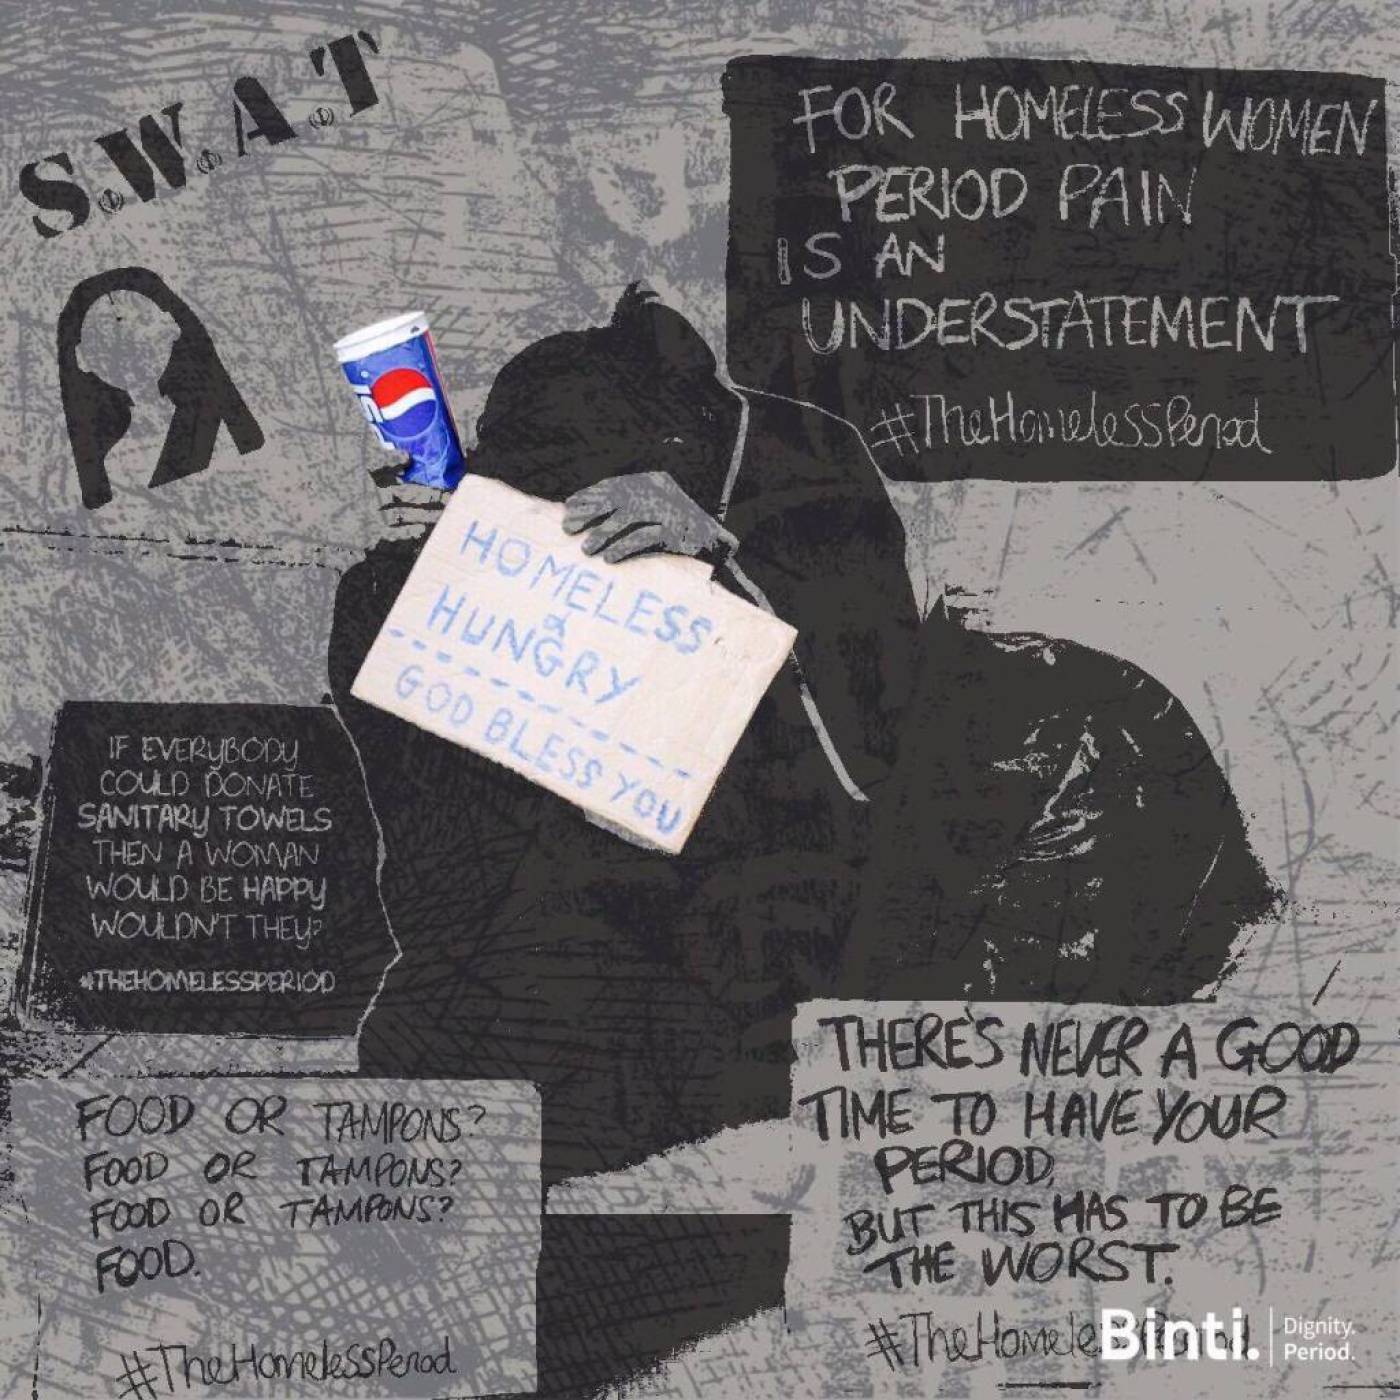 S.W.A.T
FOR HOMELESS WOMEN
PERIOD PAIN
IS AN
UNDERSTATEMENT
#TheHomelessPeriod
HOMELESS
&
HUNGRY
GOD BLESS YOU
IF EVERYBODY
COULD DONATE
SANITARY TOWELS
THEN A WOMAN
WOULD BE HAPPY
WOULDN'T THEY?
#THEHOMELESSPERIOD
FOOD OR TAMPONS?
FOOD OR TAMPONS?
FOOD OR TAMPONS?
FOOD.
#TheHomelessPeriod
THERE'S NEVER A GOOD
TIME TO HAVE YOUR
PERIOD,
BUT THIS HAS TO BE
THE WORST.
#TheHomelessPeriod
Binti. Dignity.
Period.